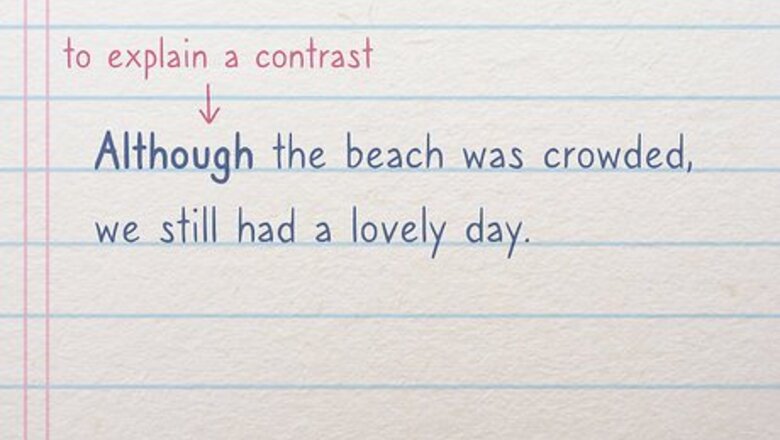 to explain a contrast
Although the beach was crowded,
we still had a lovely day.